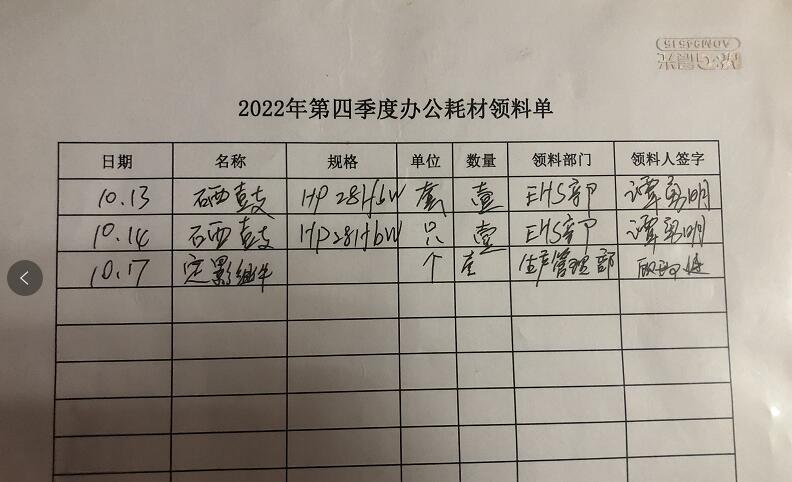 ADM94515
2022年第四季度办公耗材领料单
日期 名称 规格 单位 数量 领料部门 领料人签字
10.13 硒鼓 HP 281fbW 壹 EHS部 谭勇明
10.14 硒鼓 HP281fbW 只 壹 EHS部 谭勇明
10.17 定影组件 个 壹 生产管理部